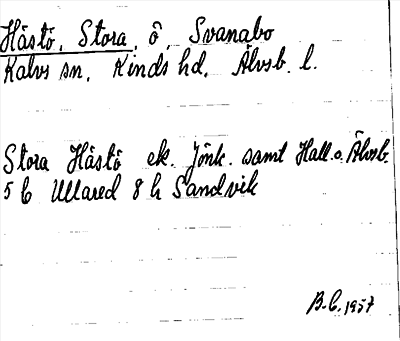 Hästö, Stora, ö, Svanabo
Kalvs sn, Kinds hd, Älvsb. l.
Stora Hästö ek. Jönk. samt Hall. o. Älvsb.
5 C Ullared 8 h Sandvik
B.C. 1957